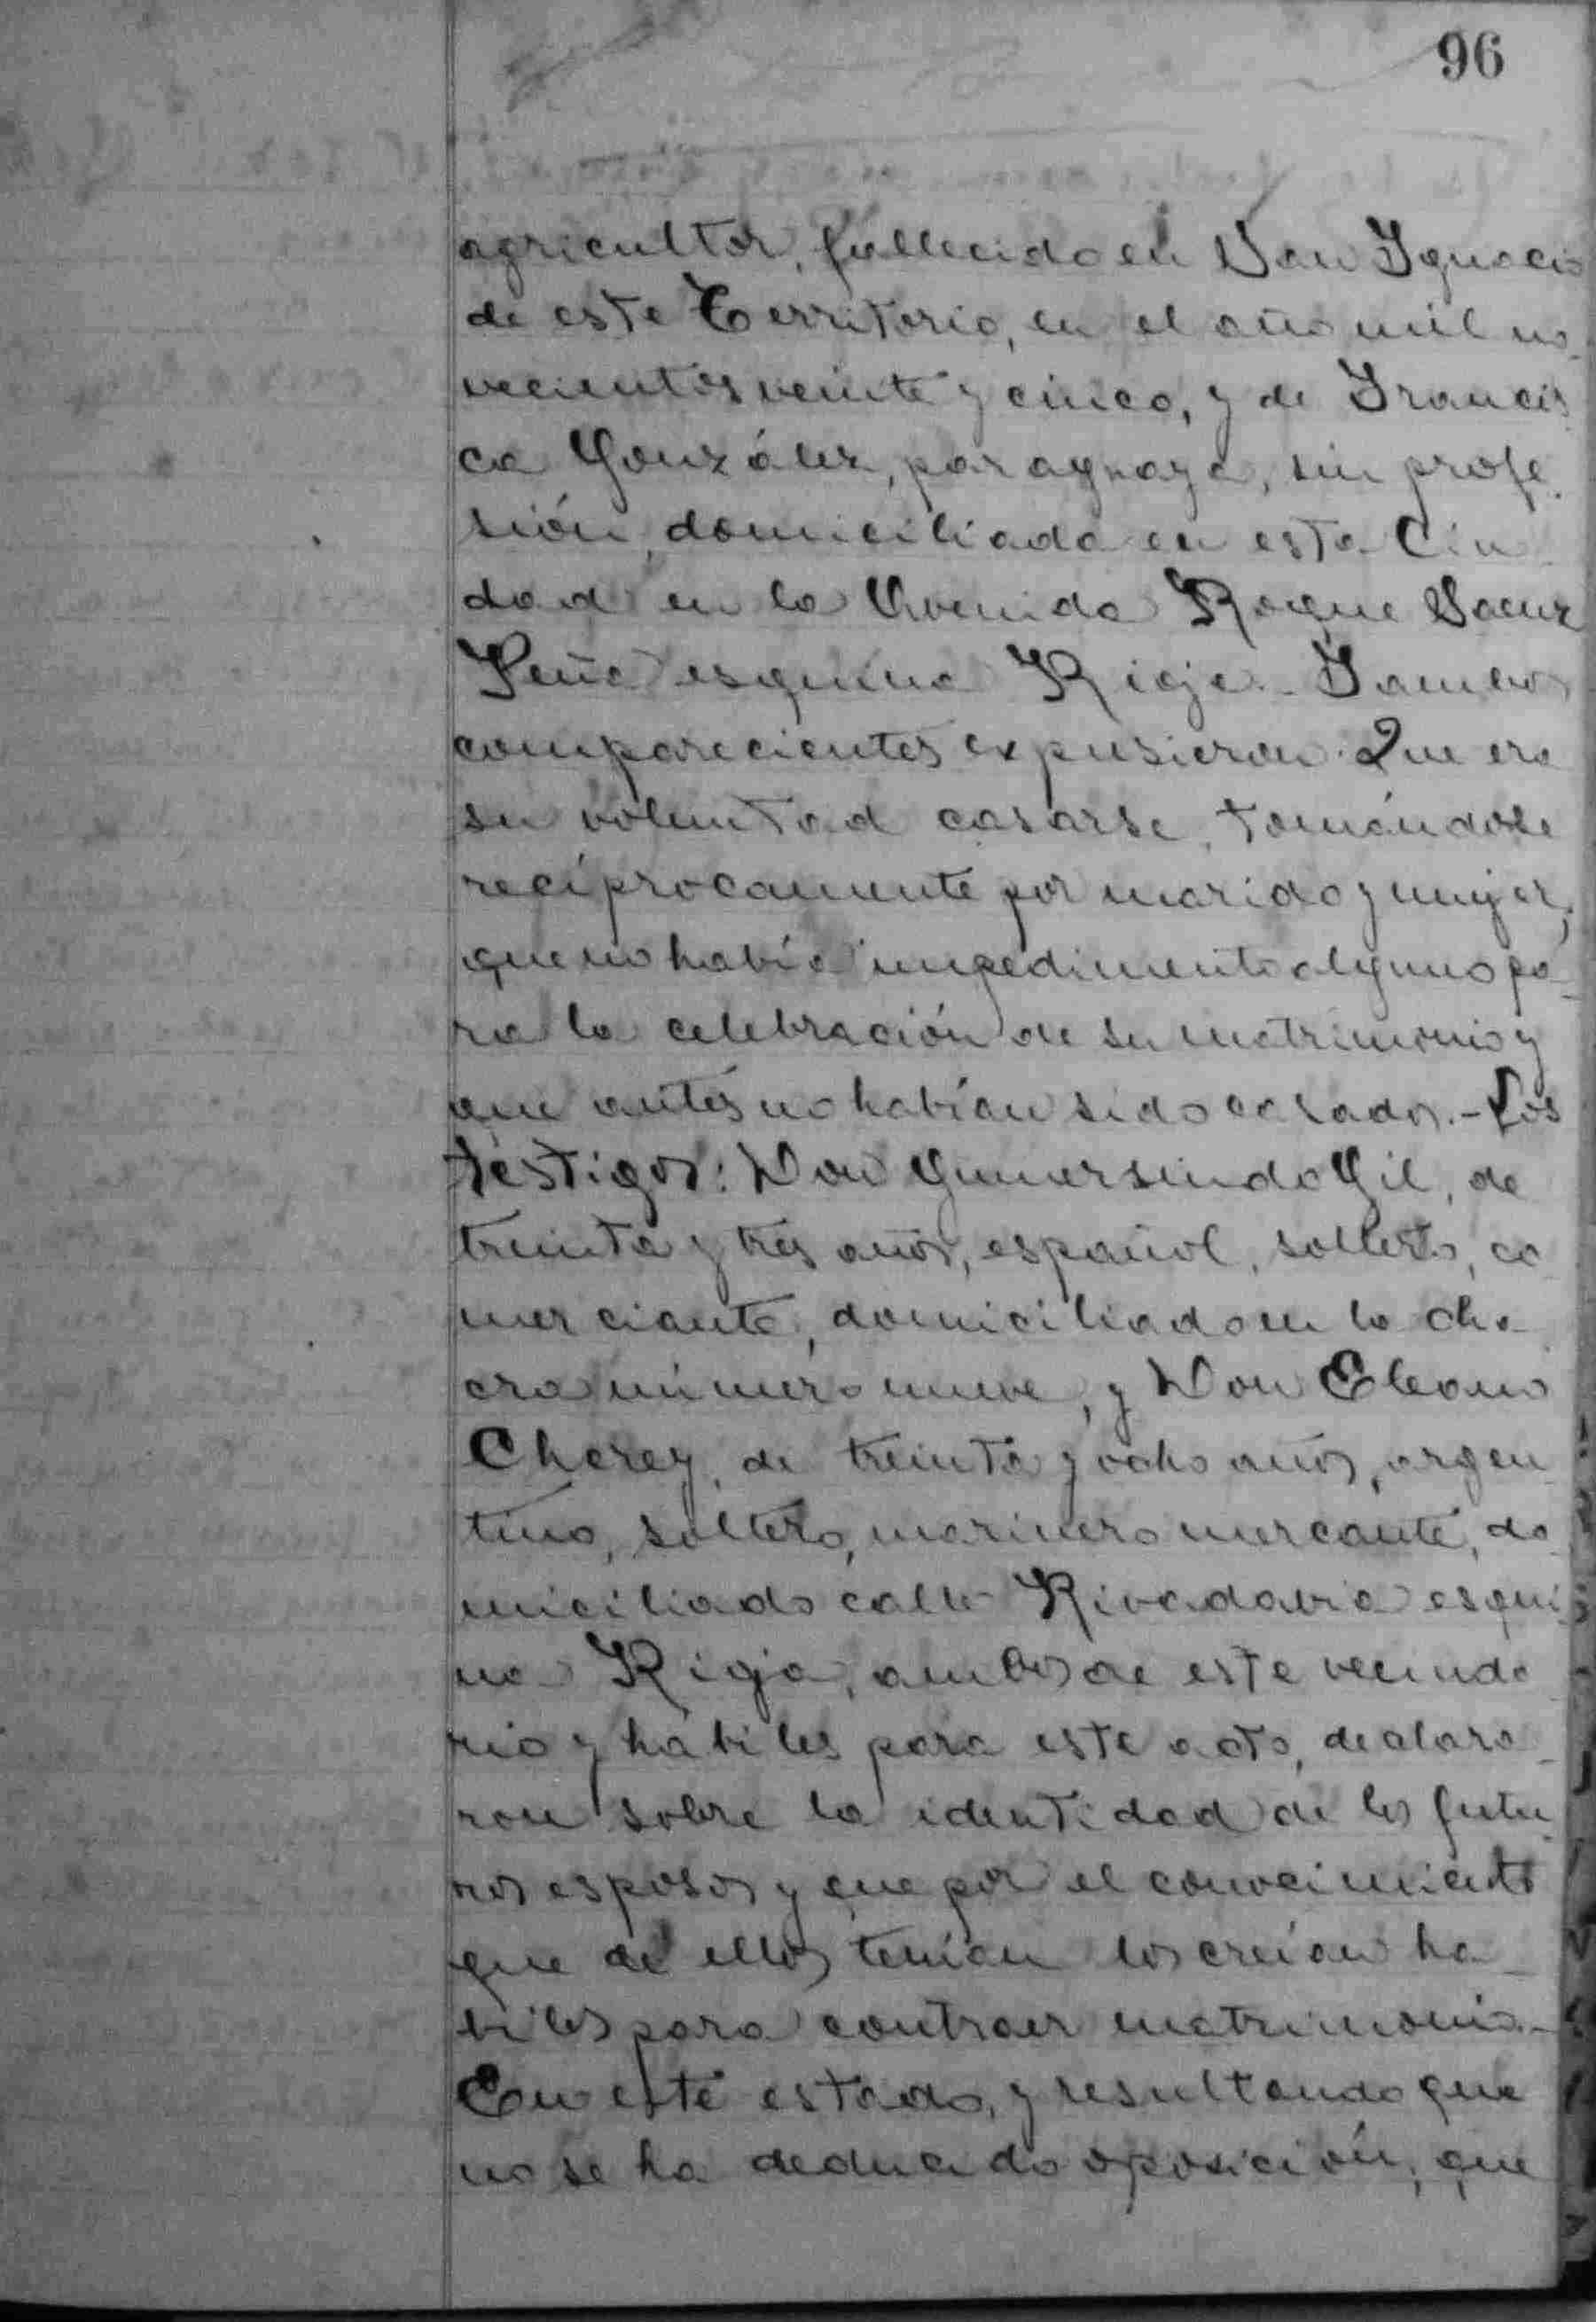 96
agricultor, fallecido en San Ignacio
de este Territorio, en el año mil no-
vecientos veinte y cinco, y de Francis
ca González, paraguaya, sin profe-
sión, domiciliada en esta Ciu-
dad en la Avenida Roque Saenz
Peña esquina Rioja.- I ambos
comparecientes expusieron: Que era
su voluntad casarse, tomándose
recíprocamente por marido y mujer,
que no había impedimento alguno pa-
ra la celebración de su matrimonio y
que antes no habían sido casados.- Los
testigos: Don Gumersindo Gil, de
treinta y tres años, español, soltero, co-
merciante, domiciliado en la cha-
cra número nueve, y Don
Cherey, de treinta y ocho años, argen-
tino, soltero, marinero mercante, do-
miciliado calle Rivadavia esqui-
na Rioja, ambos de este vecinda-
rio y hábiles para este acto, declara-
ron sobre la identidad de los futu-
ros esposos y que por el conocimiento
que de ellos tenían los creían há-
biles para contraer matrimonio.-
En este estado, y resultando que
no se ha deducido oposición, que